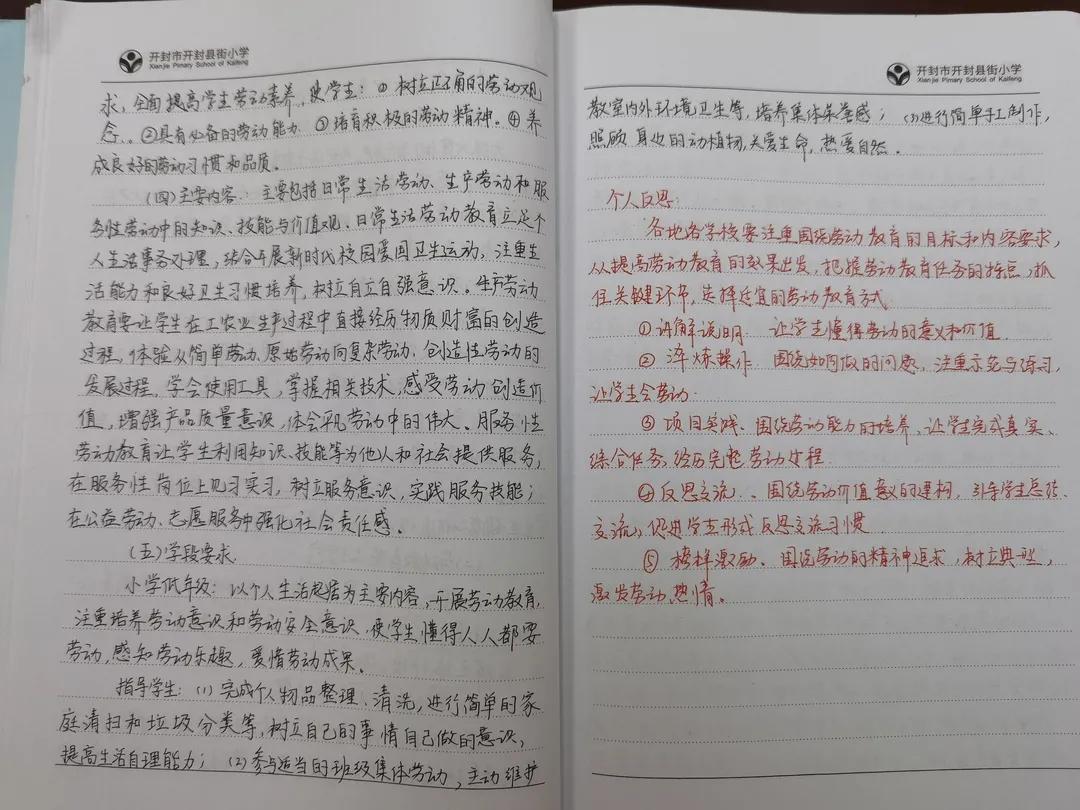 开封市开封县街小学
Xianjie Pimary School of Kaifeng
求，全面提高学生劳动素养，使学生：①树立正确的劳动观
念。②具有必备的劳动能力 ③培育积极的劳动精神。④养
成良好的劳动习惯和品质。
(四)主要内容：主要包括日常生活劳动、生产劳动和服
务性劳动中的知识、技能与价值观、日常生活劳动教育立足个
人生活事务处理，结合开展新时代校园爱国卫生运动，注重生
活能力和良好卫生习惯培养，树立自立自强意识。生产劳动
教育要让学生在工农业生产过程中直接经历物质财富的创造
过程，体验从简单劳动、原始劳动向复杂劳动、创造性劳动的
发展过程，学会使用工具，掌握相关技术，感受劳动创造价
值，增强产品质量意识，体会平凡劳动中的伟大。服务性
劳动教育让学生利用知识、技能等为他人和社会提供服务，
在服务性岗位上见习实习，树立服务意识，实践服务技能；
在公益劳动、志愿服务中强化社会责任感。
(五)学段要求
小学低年级：以个人生活起居为主要内容，开展劳动教育，
注重培养劳动意识和劳动安全意识，使学生懂得人人都要
劳动，感知劳动乐趣，爱惜劳动成果。
指导学生：(1)完成个人物品整理、清洗，进行简单的家
庭清扫和垃圾分类等，树立自己的事情自己做的意识，
提高生活自理能力；(2)参与适当的班级集体劳动，主动维护
开封市开封县街小学
Xianjie Pimary School of Kaifeng
教室内外环境卫生等，培养集体荣誉感；(3)进行简单手工制作，
照顾身边的动植物，关爱生命，热爱自然。
个人反思：
各地各学校要注重围绕劳动教育的目标和内容要求，
从提高劳动教育的效果出发，把握劳动教育任务的特点，抓
住关键环节，选择适宜的劳动教育方式
①讲解说明 让学生懂得劳动的意义和价值
②淬炼操作 围绕如何做的问题，注重示范与练习，
让学生会劳动
③项目实践、围绕劳动能力的培养，让学生完成真实、
综合任务，经历完整劳动过程
④反思交流、围绕劳动价值意义的建构，引导学生总结
交流，促进学生形式反思交流习惯
⑤榜样激励、围绕劳动的精神追求，树立典型，
激发劳动热情。